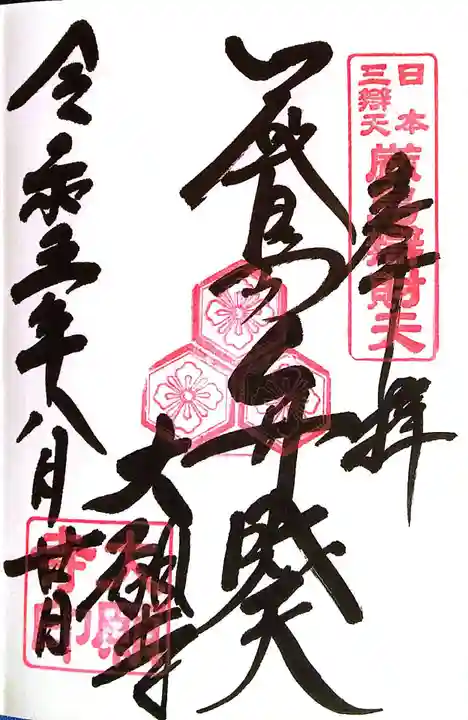 日本
三辯天
厳島辯財天
奉拝
厳島弁財天
大願寺
令和五年八月廿日